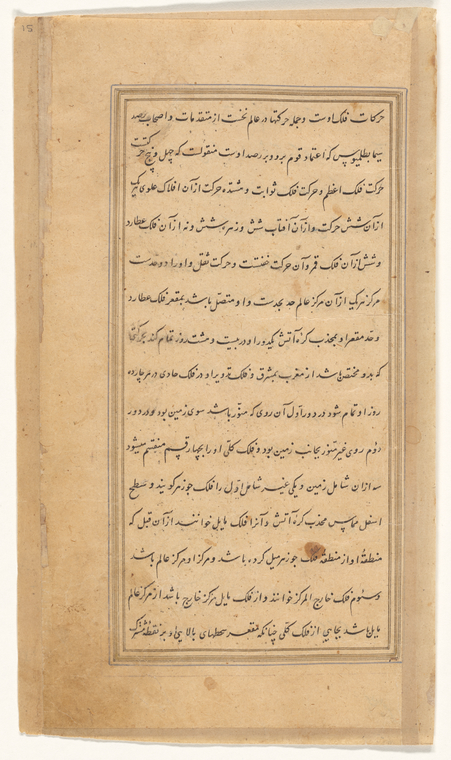 حرکات فلک اوست و جمله حرکتها در عالم نخست از متقدمات و اصحاب رصد
سیما بطلمیوس که اعتماد قوم برو و بر رصد اوست منقولست که چهل و پنج حرکتست
حرکت فلک اعظم و حرکت فلک ثوابت و هشده حرکت از آن افلاک علوی هریک
از آن شش حرکت و از آن آفتاب شش و زهره شش و نه از آن فلک عطارد
و شش از آن فلک قمر و آن حرکت خفتست و حرکت ثقل و او را دو حدست
مرکز هریک از آن مرکز عالم حد بحدست و او متصل باشد بمقعر فلک عطارد
و حد مقعر او بمحدب کره آتش یکدور او در بیست و هشت روز تمام کند بحرکتی
که بدو مختص باشد از مغرب بمشرق و فلک تدویر او در فلک حاوی در هر چارده
روز او تمام شود در دور اول آن روی که منور باشد سوی زمین بود و در دور
دوم روی غیر منور بجانب زمین بود و فلک کلی او را بچهار قسم منقسم میشود
سه از آن شامل زمین و یکی غیر شامل اول را فلک جوزهر گویند و سطح
اسفل مماس محدب کره آتش و آنرا فلک مایل خوانند از آن قبل که
منطقهٔ او از منطقه فلک جوزهر میل کرده باشد و مرکز او مرکز عالم باشد
و سیوم فلک خارج المرکز خوانند و از فلک مایل مرکز خارج باشد از مرکز عالم
مایل باشد بجانبی از فلک کلی چنانکه مقعر سطحهای بالایی او به نقطهٔ مشترک